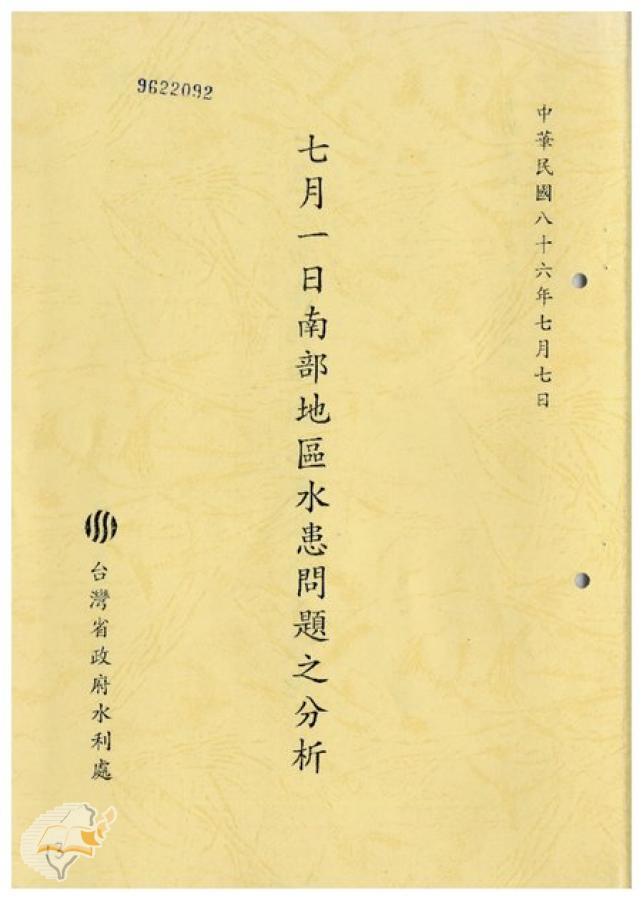 9622092
中華民國八十六年七月七日
七月一日南部地區水患問題之分析
台灣省政府水利處